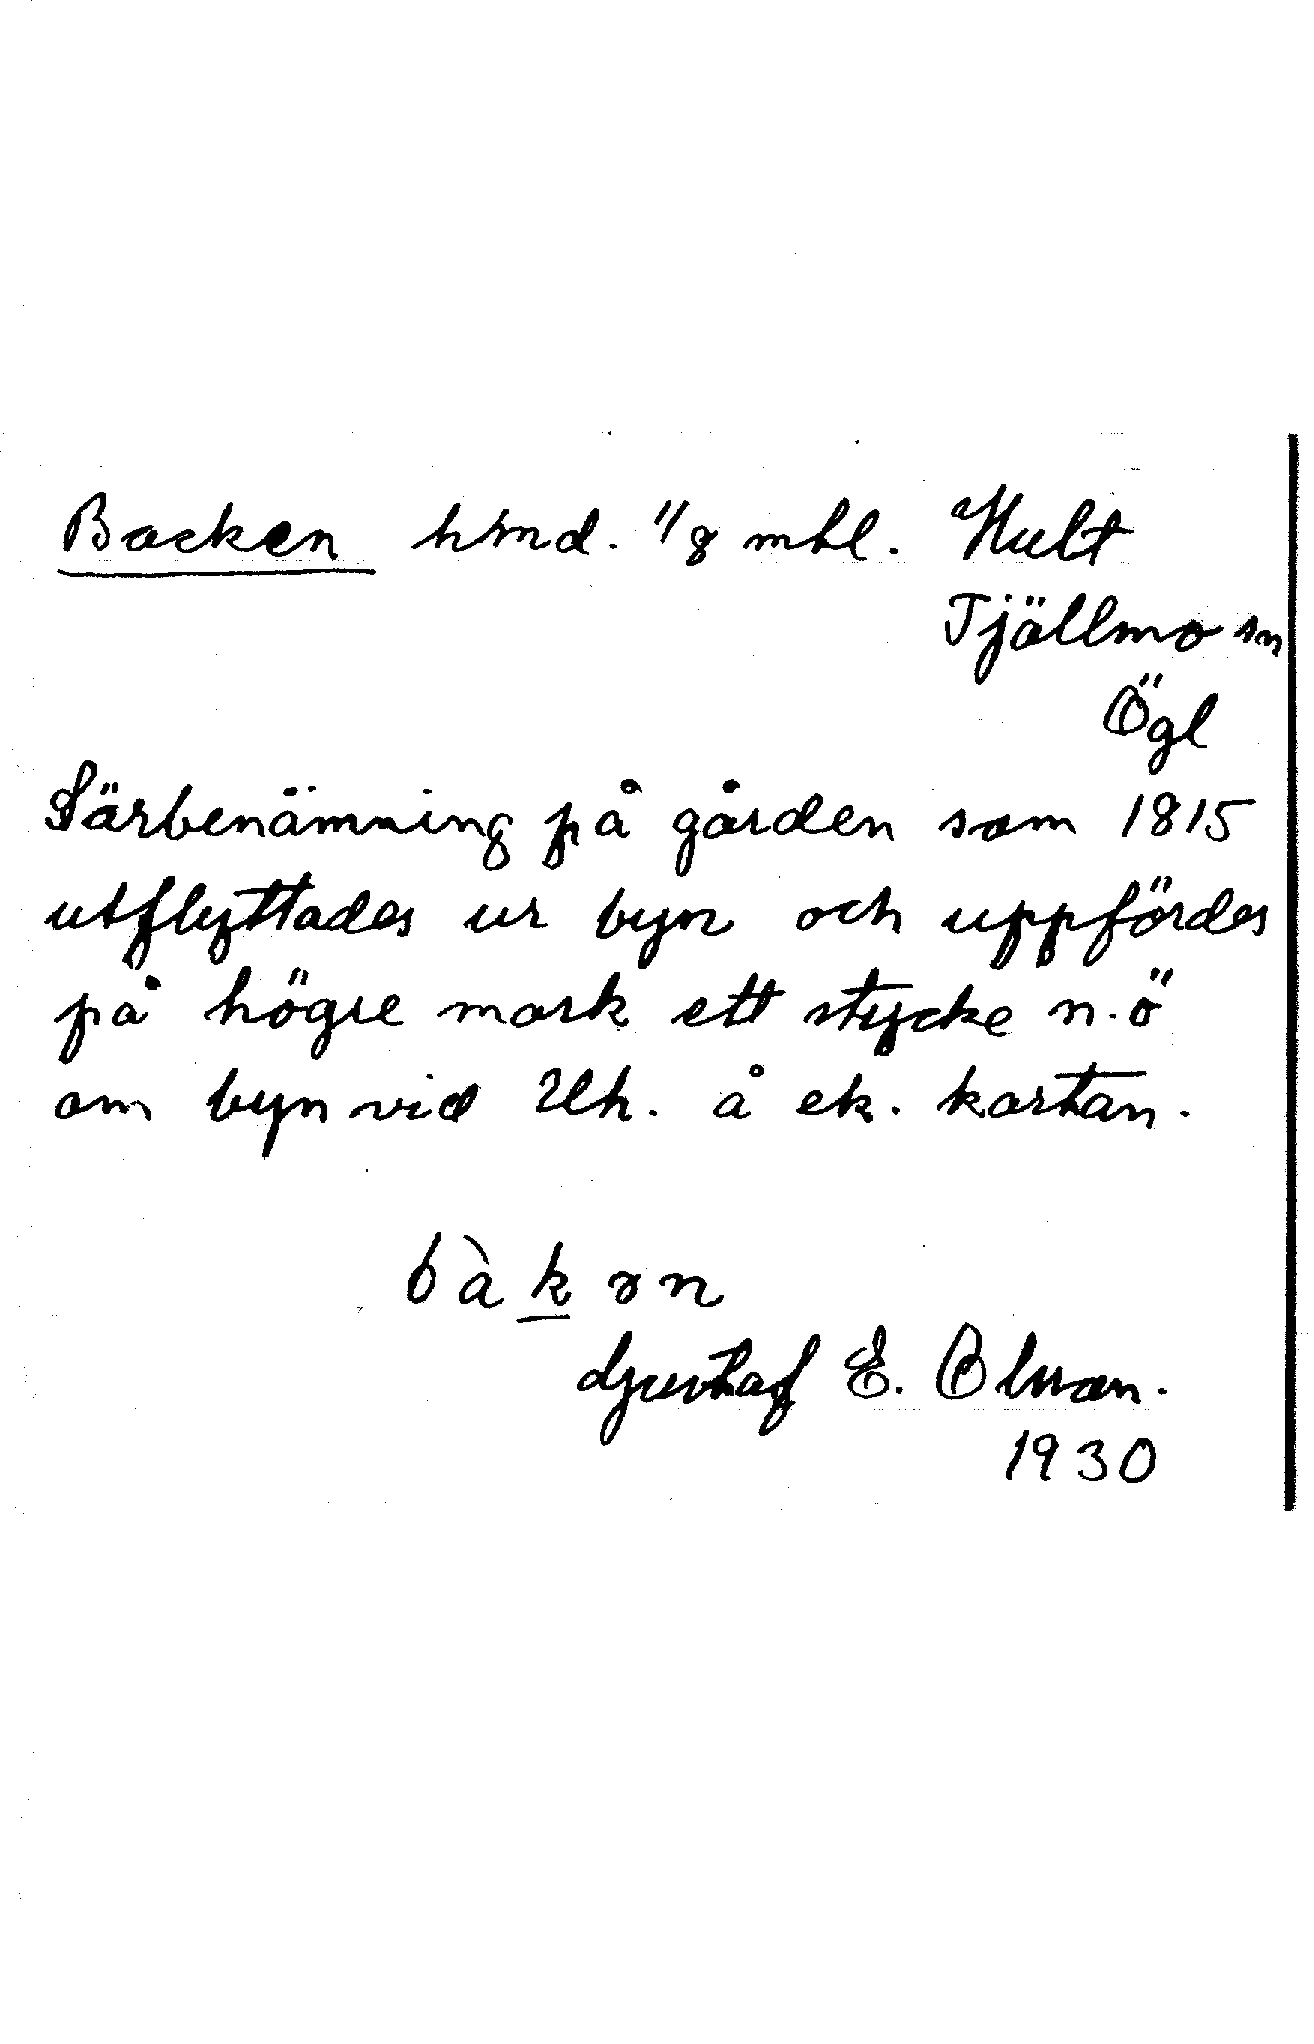 Backen hmd. 1/8 mtl. Hult
Tjällmo sn
Ögl
Särbenämning på gården som 1815
utflyttades ur byn och uppfördes
på högre mark ett stycke n.ö
om byn vid Uh. å ek. kartan.
bàkən
Gusthaf E. Olsson.
1930